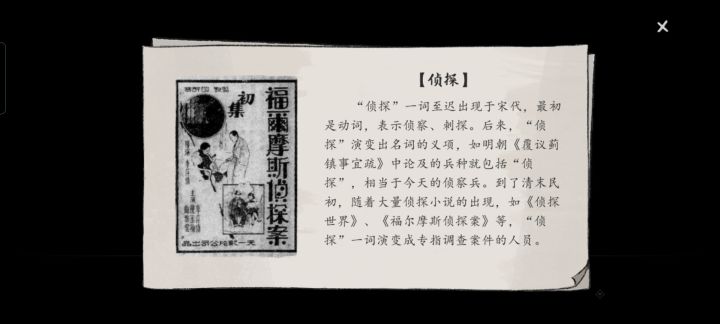 【侦探】
“侦探”一词至迟出现于宋代，最初
是动词，表示侦察、刺探。后来，“侦
探”演变出名词的义项，如明朝《覆议蓟
镇事宜疏》中论及的兵种就包括“侦
探”，相当于今天的侦察兵。到了清末民
初，随着大量侦探小说的出现，如《侦探
世界》、《福尔摩斯侦探案》等，“侦
探”一词演变成专指调查案件的人员。
福爾摩斯偵探案
初集